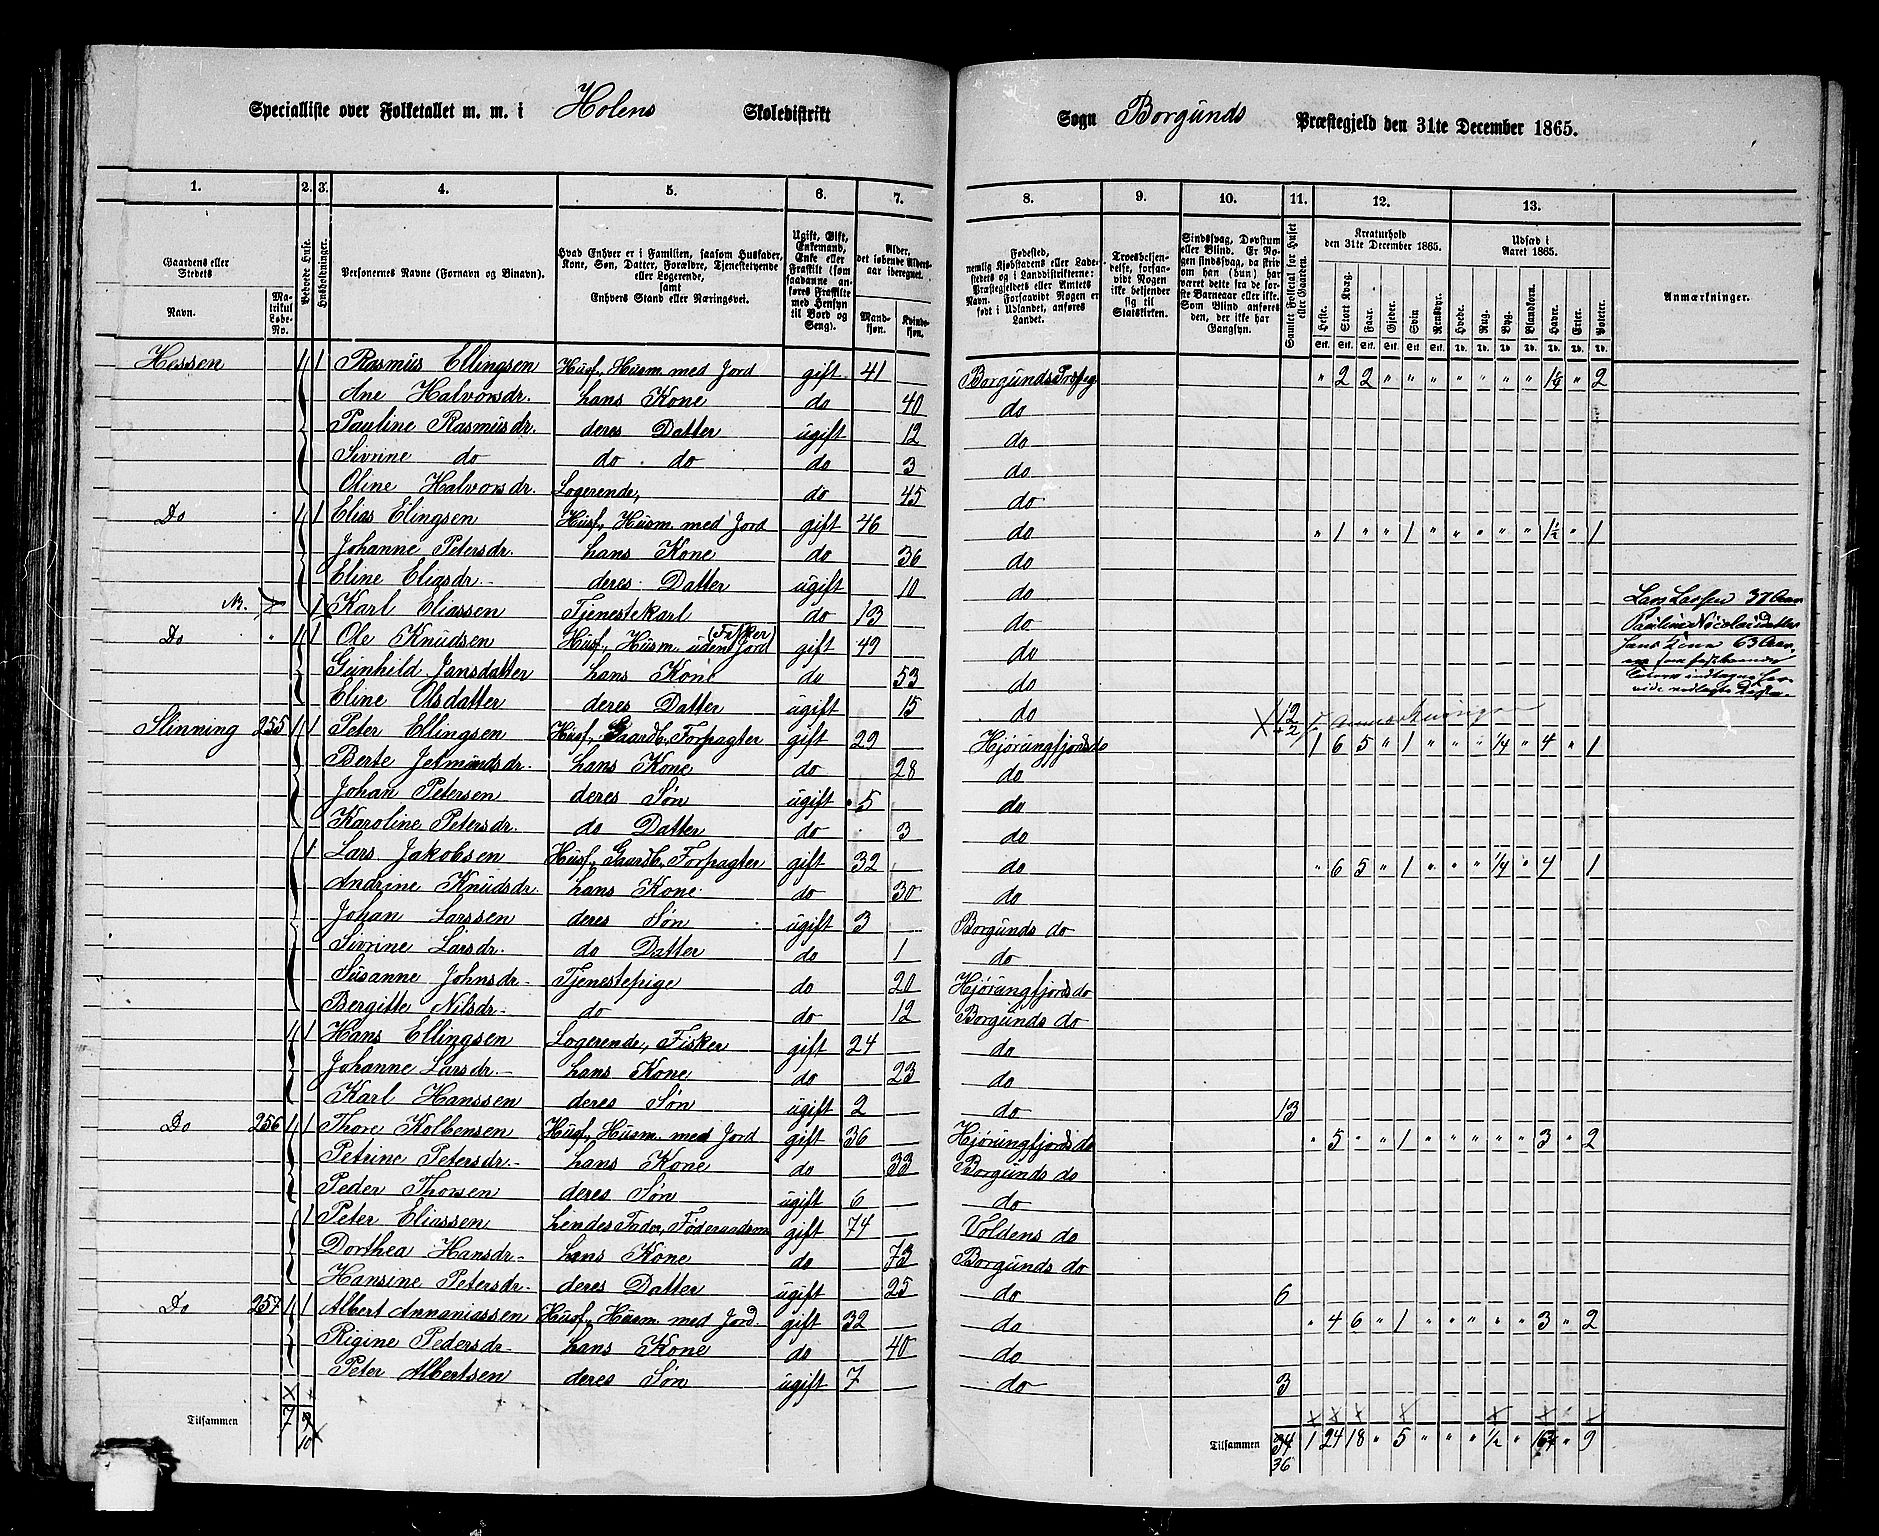 Specialliste over Folketallet m. m. i Holens Skoledistrikt
Sogn Borgunds Præstegjeld den 31te December 1865.
1. 2. 3. 4. 5. 6. 7. 8. 9. 10. 11. 12. 13.
Gaardens eller Stedets
Navn.
Matrikul Løbe-No.
Beboede Huse.
Husholdninger.
Personernes Navne (Fornavn og Binavn).
Hvad Enhver er i Familien, saasom Husfader, Kone, Søn, Datter, Forældre, Tjenestetyende eller Logerende, samt Enhvers Stand eller Næringsvei.
Ugift, Gift, Enkemand, Enke eller Fraskilt (som saadanne anføres Fraskilte med Hensyn til Bord og Seng).
Alder, det løbende Alders-aar iberegnet.
Mandkjøn. Kvindekjøn.
Fødested, nemlig Kjøbstadens eller Ladestedets og i Landdistrikterne: Præstegjeldets eller Amtets Navn. Forsaavidt Nogen er født i Udlandet, anføres Landet.
Troesbekjendelse, forsaavidt Nogen ikke bekjender sig til Statskirken.
Sindssvag, Døvstum eller Blind. Er Nogen sindssvag, da skrives om han (hun) har været dette fra de første Barneaar eller ikke. Som Blind anføres den, der ikke har Gangsyn.
Samlet Folketal for Huset eller Gaarden.
Kreaturhold den 31te December 1865.
Heste. Stort Kvæg. Faar. Gjeder. Svin Rensdyr.
Udsæd i Aaret 1865.
Hvede. Rug. Byg. Blandkorn. Havre. Erter. Poteter.
Anmærkninger.
Hessen 1 1 Rasmus Ellingsen Husf., Husm. med Jord gift 41 Borgunds Præsteg " 2 2 " " " " " " " 1½ " 2
Ane Halvorsdr. hans Kone do 40 do
Pauline Rasmusdr. deres Datter ugift 12 do
Sivrine do do do do 3 do
Oline Halvorsdr. Logerende, do 45 do
Do 1 1 Elias Elingsen Husf., Husm. med Jord gift 46 do " 1 " " 1 " " " " " 1½ " 1
Johanne Petersdr. hans Kone do 36 do
Eline Eliasdr. deres Datter ugift 10 do
Karl Eliassen Tjenestekarl do 13 do
Do " 1 1 Ole Knudsen Husf., Husm. uden Jord (Fisker) gift 49 do
Gunhild Jansdatter hans Kone do 53 do
Eline Olsdatter deres Datter ugift 15 do 12 +2
Lars Larsen 37 Aar
Pauline Nicolaisdatter
hans Kone 63 Aar
Slinning 255 1 1 Peter Ellingsen Husf., Gaardb., Forpagter gift 29 Hjørungfjords do 1 6 5 " 1 " " " ¼ " 4 " 1
Berte Jetmundsdr. hans Kone do 28 do
Johan Petersen deres Søn ugift 5 do
Karoline Petersdr. do Datter do 3 do
1 Lars Jakobsen Husf., Gaardb., Forpagter gift 32 do " 6 5 " 1 " " " ¼ " 4 1
Andrine Knudsdr. hans Kone do 30 do
Johan Larssen deres Søn ugift 3 Borgunds do
Sivrine Larsdr. do Datter do 1 do
Susanne Johnsdr. Tjenestepige do 20 Hjørungfjords do
Bergitte Nilsdr. do do 12 Borgunds do
1 1 Hans Ellingsen Logerende, Fisker gift 24 do
Johanne Larsdr. hans Kone do 23 do
Karl Hanssen deres Søn ugift 2 do 13
Do 256 1 1 Thore Kolbensen Husf., Husm. med Jord gift 36 Hjørungfjords do " 5 " " 1 " " " " " 3 " 2
Petrine Petersdr. hans Kone do 33 Borgunds do
Peder Thorsen deres Søn ugift 6 do
1 Peter Eliassen hendes Fader, Føderaadsm gift 74 Voldens do
Dorthea Hansdr. hans Kone do 73 Borgunds do
Hansine Petersdr. deres Datter ugift 25 do 6
Do 257 1 1 Albert Annaniassen Husf., Husm. med Jord. gift 32 do " 4 6 " 1 " " " " " 3 " 2
Rigine Pedersdr. hans Kone do 40 do
Peter Albertsen deres Søn ugift 7 do 3
Tilsammen 7 9 10
Tilsammen 34 36 1 24 18 " 5 " " " ½ " " 9